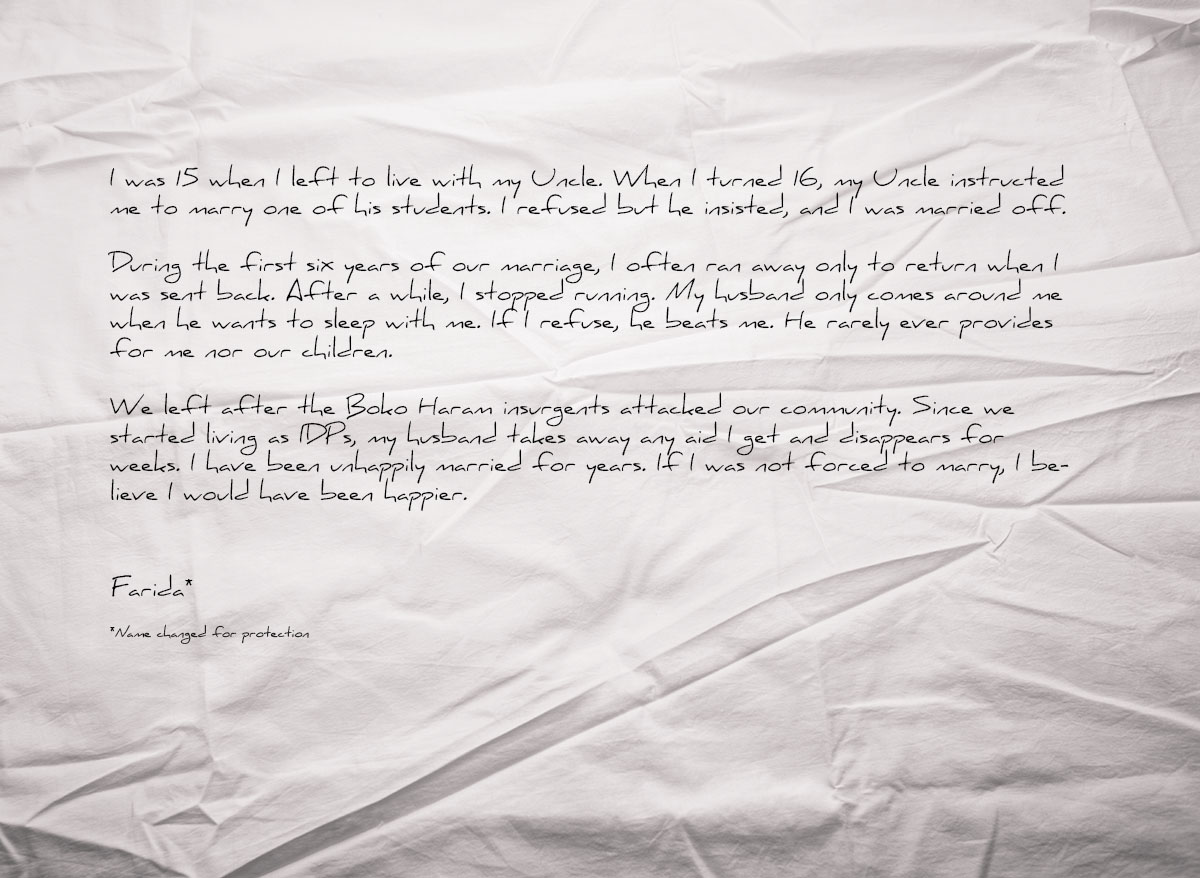 I was 15 when I left to live with my Uncle. When I turned 16, my Uncle instructed
me to marry one of his students. I refused but he insisted, and I was married off.
During the first six years of our marriage, I often ran away only to return when I
was sent back. After a while, I stopped running. My husband only comes around me
when he wants to sleep with me. If I refuse, he beats me. He rarely ever provides
for me nor our children.
We left after the Boko Haram insurgents attacked our community. Since we
started living as IDPs, my husband takes away any aid I get and disappears for
weeks. I have been unhappily married for years. If I was not forced to marry, I be-
lieve I would have been happier.
Farida*
*Name changed for protection